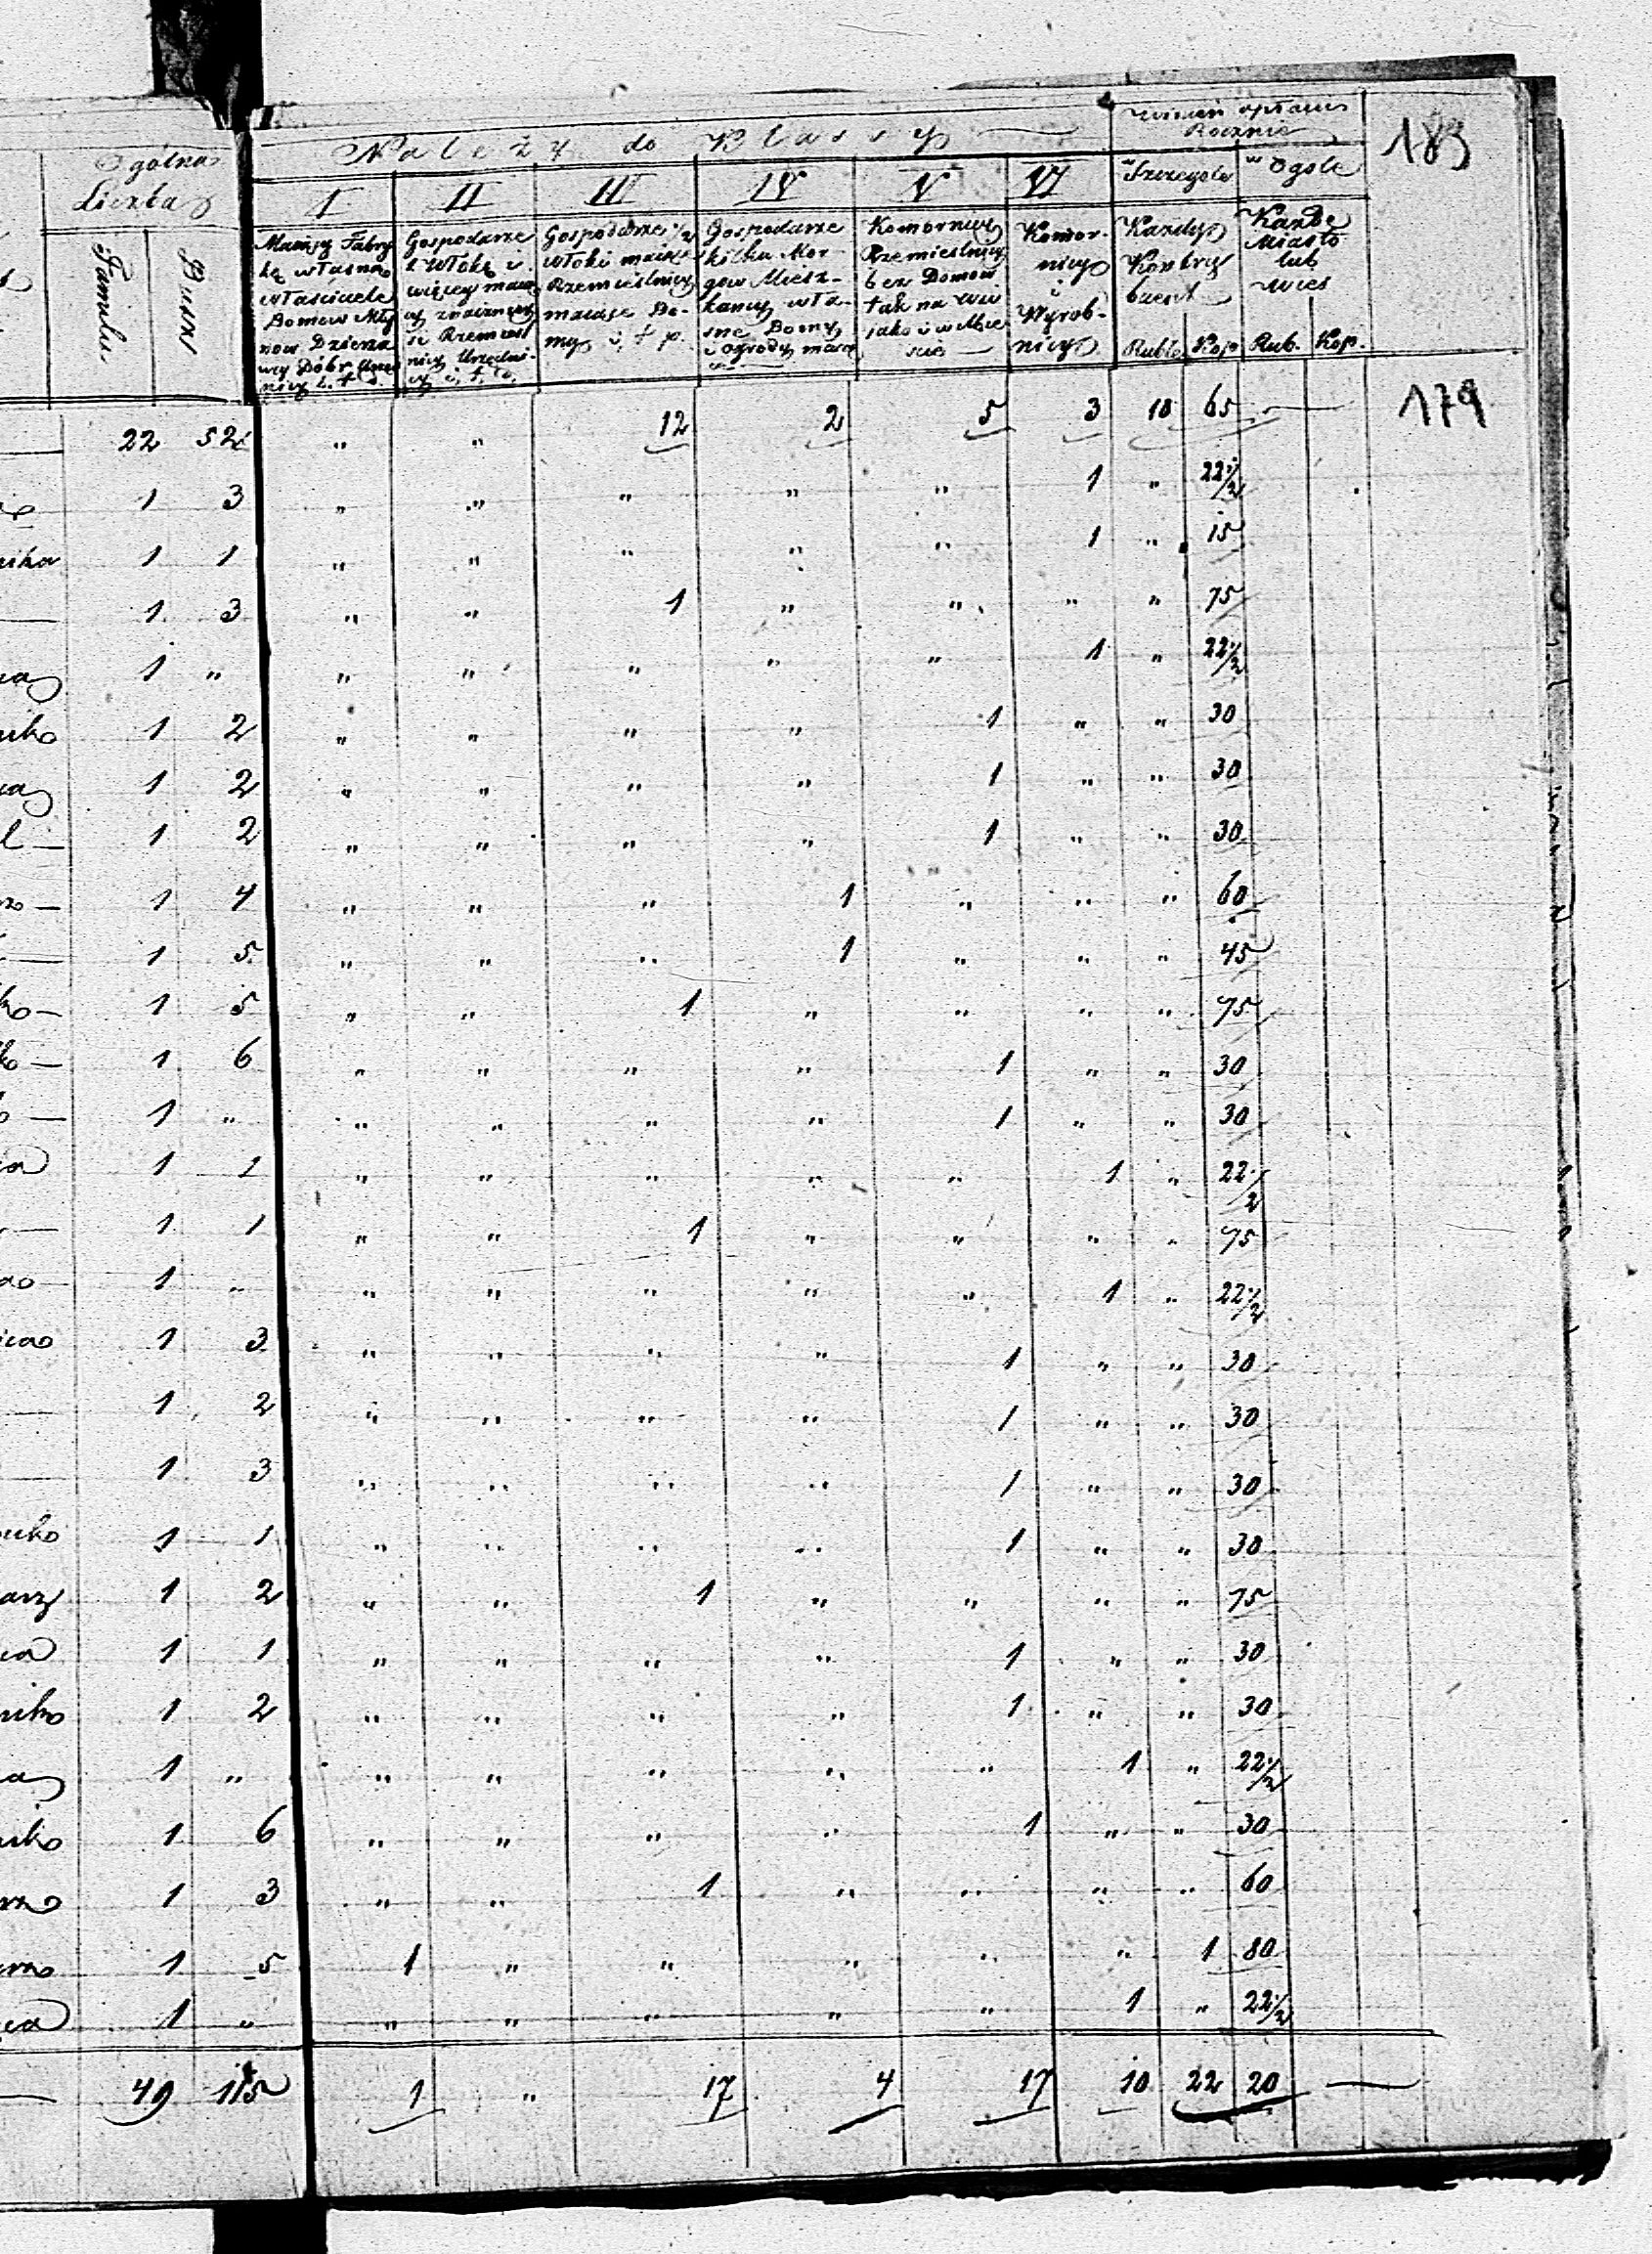 Ogólna
Liczba
Familii
Dusz
Należy do Klassy
winien opłacać
Rocznie
183
I
II
III
IV
V
VI
w Szczególe
w Ogóle
Mający Fabry
kę własną
właściciele
Domow Mły
now Dzierza
wcy Dóbr
nicy i. t. d.
Gospodarze
z Włokę i
więcey mają
cy znacznieys
si Rzemieśl
nicy Urzędni-
cy i. t. d.
Gospodarze 1/2
włoki mające
Rzemieślnicy
mające Do-
my i. t. p.
Gospodarze
kilku Mor-
gow Miesz-
kancy wła-
sne Domy
i ogrody mając
Komornicy
Rzemieślnicy
bez Domow
tak na wsi
jako i w Mie
ście
Komor-
nicy
i
Wyrob-
nicy
Każdy
Kontry
buent
Każde
Miasto
lub
wieś
Ruble Kop Rub. Kop.
22 52 " " 12 2 5 3 10 65 —
179
1 3 " " " " " 1 " 22 1/2
nika 1 1 " " " " " 1 " 15
— 1 3 " " 1 " " " " 75
1 " " " " " " 1 " 22 1/2
1 2 " " " " 1 " " 30
1 2 " " " " 1 " " 30
1 2 " " " " 1 " " 30
1 4 " " " 1 " " " 60
1 5 " " " 1 " " " 45
1 5 " " 1 " " " " 75
1 6 " " " " 1 " " 30
1 " " " " " 1 " " 30
1 1 " " " " " 1 " 22 1/2
1 1 " " 1 " " " " 75
1 " " " " " " 1 " 22 1/2
1 3 " " " " 1 " " 30
1 2 " " " " 1 " " 30
1 3 " " " " 1 " " 30
1 1 " " " " 1 " " 30
arz 1 2 " " 1 " " " " 75
1 1 " " " " 1 " " 30
1 2 " " " " 1 " " 30
1 " " " " " " 1 " 22 1/2
1 6 " " " " 1 " " 30
1 3 " " 1 " " " " 60
1 5 1 " " " " " 1 80
1 " " " " " " 1 " 22 1/2
— 49 115 1 " 17 4 17 10 22 20 —